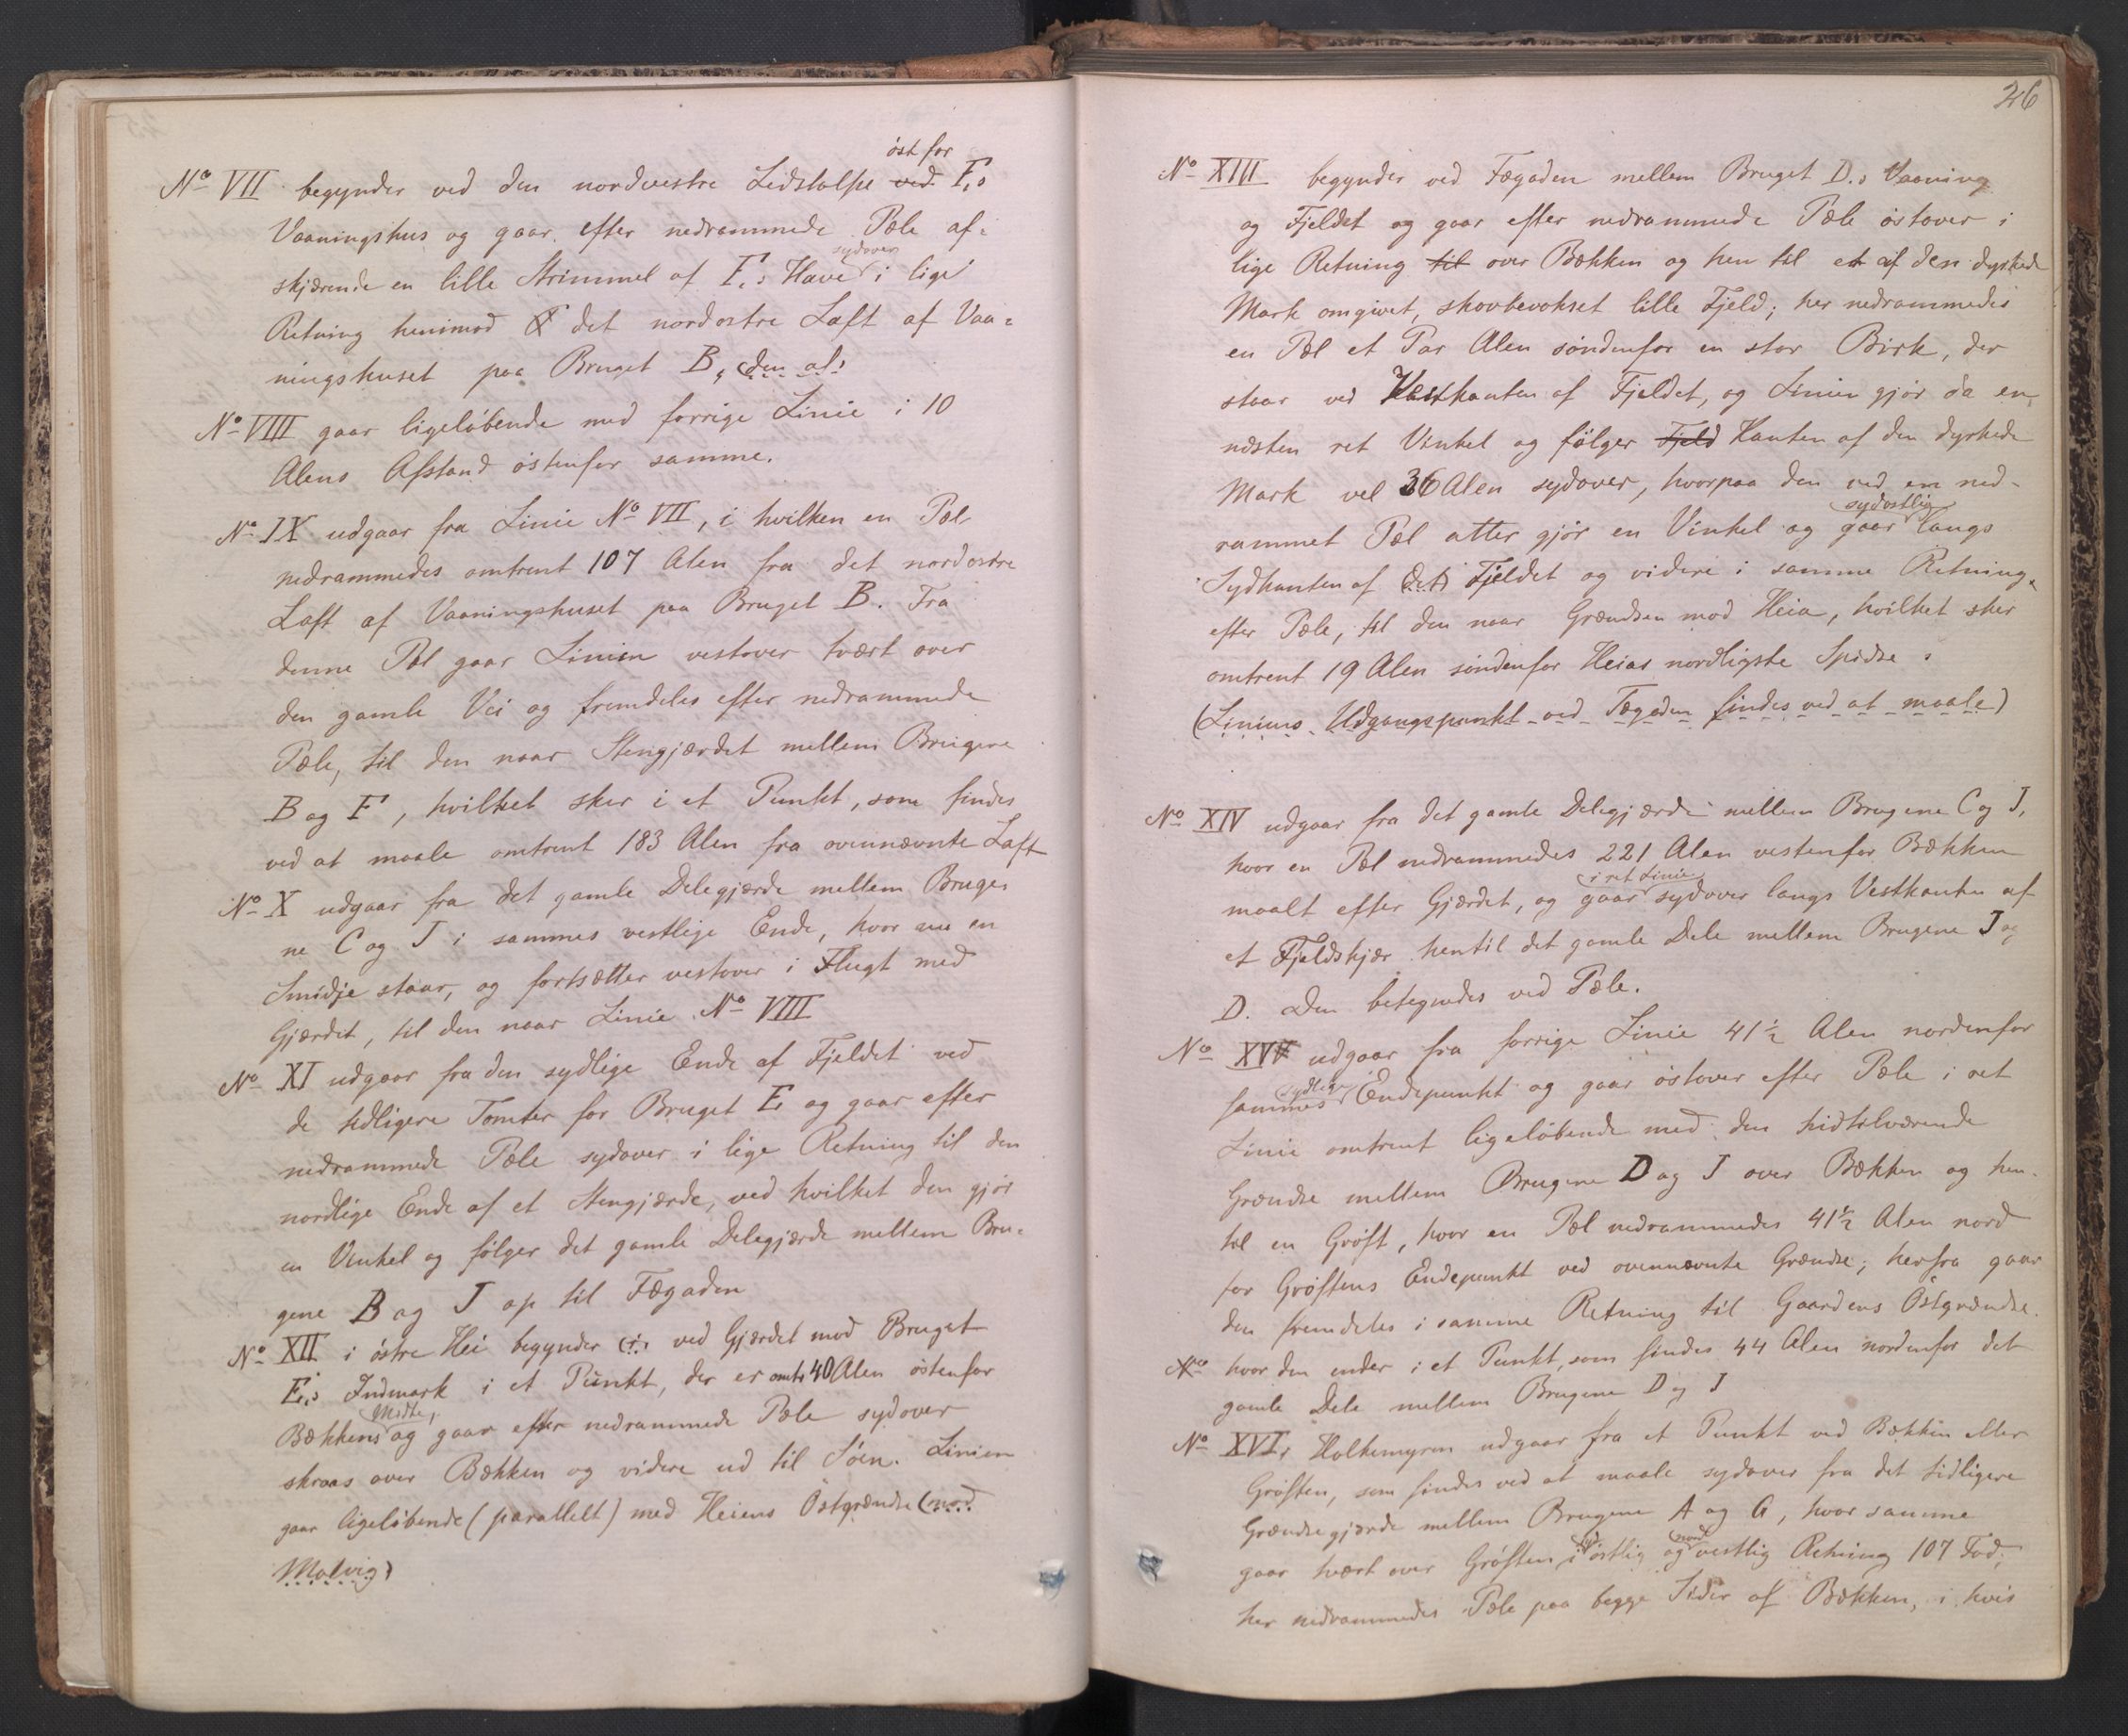 öst for
No VII begynder ved den nordvestre Ledstolpe ved F.s
Vaaningshus og gaar efter nedrammede Pæle af-
sydover
skjærende en lille Strimmel af F.s Have i lige
Retning henimod det nordostre Laft af Vaa-
ningshuset paa Bruget B, (den al)
No VIII gaar ligeløbende med forrige Linie i 10
Alens Afstand østenfor samme.
No IX udgaar fra Linie No VII, i hvilken en Pæl
nedrammedes omtrent 107 Alen fra det nordostre
Laft af Vaaningshuset paa Bruget B. Fra
denne Pæl gaar Linien vestover tvært over
den gamle Vei og fremdeles efter nedrammede
Pæle, til den naar Stengjærdet mellem Brugene
B og F, hvilket sker i et Punkt, som findes
ved at maale omtrent 183 Alen fra ovennævnte Laft
No X udgaar fra det gamle Delegjærde mellem Bruge-
ne C og J i sammes vestlige Ende, hvor nu en
Smidje staar, og fortsætter vestover i Flugt med
Gjærdet, til den naar Linie No VIII
No XI udgaar fra den sydlige Ende af Fjeldet ved
de tidligere Tomter for Bruget E og gaar efter
nedrammede Pæle sydover i lige Retning til den
nordlige Ende af et Stengjærde, ved hvilket den gjör
en Vinkel og følger det gamle Delegjærde mellem Bru-
gene B og J op til Fægaden
No XII i östre Hei begynder (i) ved Gjærdet mod Bruget
E.s Indmark i et Punkt, der er omtr 40 Alen østenfor
Midte,
Bækkens og gaar efter nedrammede Pæle sydover
skraas over Bækken og videre ud til Söen. Linien
gaar ligeløbende (parallelt) med Heiens Östgrændse (mod
Malvig)
26
No XIII begynder ved Fægaden mellem Bruget D.s Vaaning
og Fjeldet og gaar efter nedrammede Pæle östover i
lige Retning til over Bækken og hen til et af den dyrkede
Mark omgivet, skovbevokset lille Fjeld; her nedrammedes
en Pæl et Par Alen söndenfor en stor Birk, der
staar ved Vestkanten af Fjeldet, og Linien gjör da en
næsten ret Vinkel og fölger Fjeld Kanten af den dyrkede
Mark vel 36 Alen sydover, hvorpaa den ved en ned-
sydostlig
rammet Pæl atter gjör en Vinkel og gaar langs
Sydkanten af (det) Fjeldet og videre i samme Retning
efter Pæle, til den naar Grændsen mod Heia, hvilket sker
omtrent 19 Alen söndenfor Heias nordligste Spidse.
(Liniens Udgangspunkt ved Fægaden findes ved at maale)
No XIV udgaar fra det gamle Delegjærde mellem Brugene C og J,
hvor en Pæl nedrammedes 221 Alen vestenfor Bækken
i ret Linie
maalt efter Gjærdet, og gaar sydover langs Vestkanten af
et Fjeldskjær hentil det gamle Dele mellem Brugene J og
D. Den betegnedes ved Pæle.
No XV udgaar fra forrige Linie 41 1/2 Alen nordenfor
sydlige
sammes Endepunkt og gaar östover efter Pæle i ret
Linie omtrent ligelöbende med den hidtilværende
Grændse mellem Brugene D og J over Bækken og hen-
til en Gröft, hvor en Pæl nedrammedes 41 1/2 Alen nord
for Gröftens Endepunkt ved ovennævnte Grændse; herfra gaar
den fremdeles i samme Retning til Gaardens Östgrændse
No hvor den ender i et Punkt, som findes 44 Alen nordenfor det
gamle Dele mellem Brugene D og J
No XVI, Holkemyren udgaar fra et Punkt ved Bækken eller
Gröften, som findes ved at maale sydover fra det tidligere
Grændsegjærde mellem Brugene A og G, hvor samme
nord
gaar tvært over Gröften i östlig og vestlig Retning 107 Fod;
her nedrammedes Pæle paa begge Sider af Bækken, i hvis